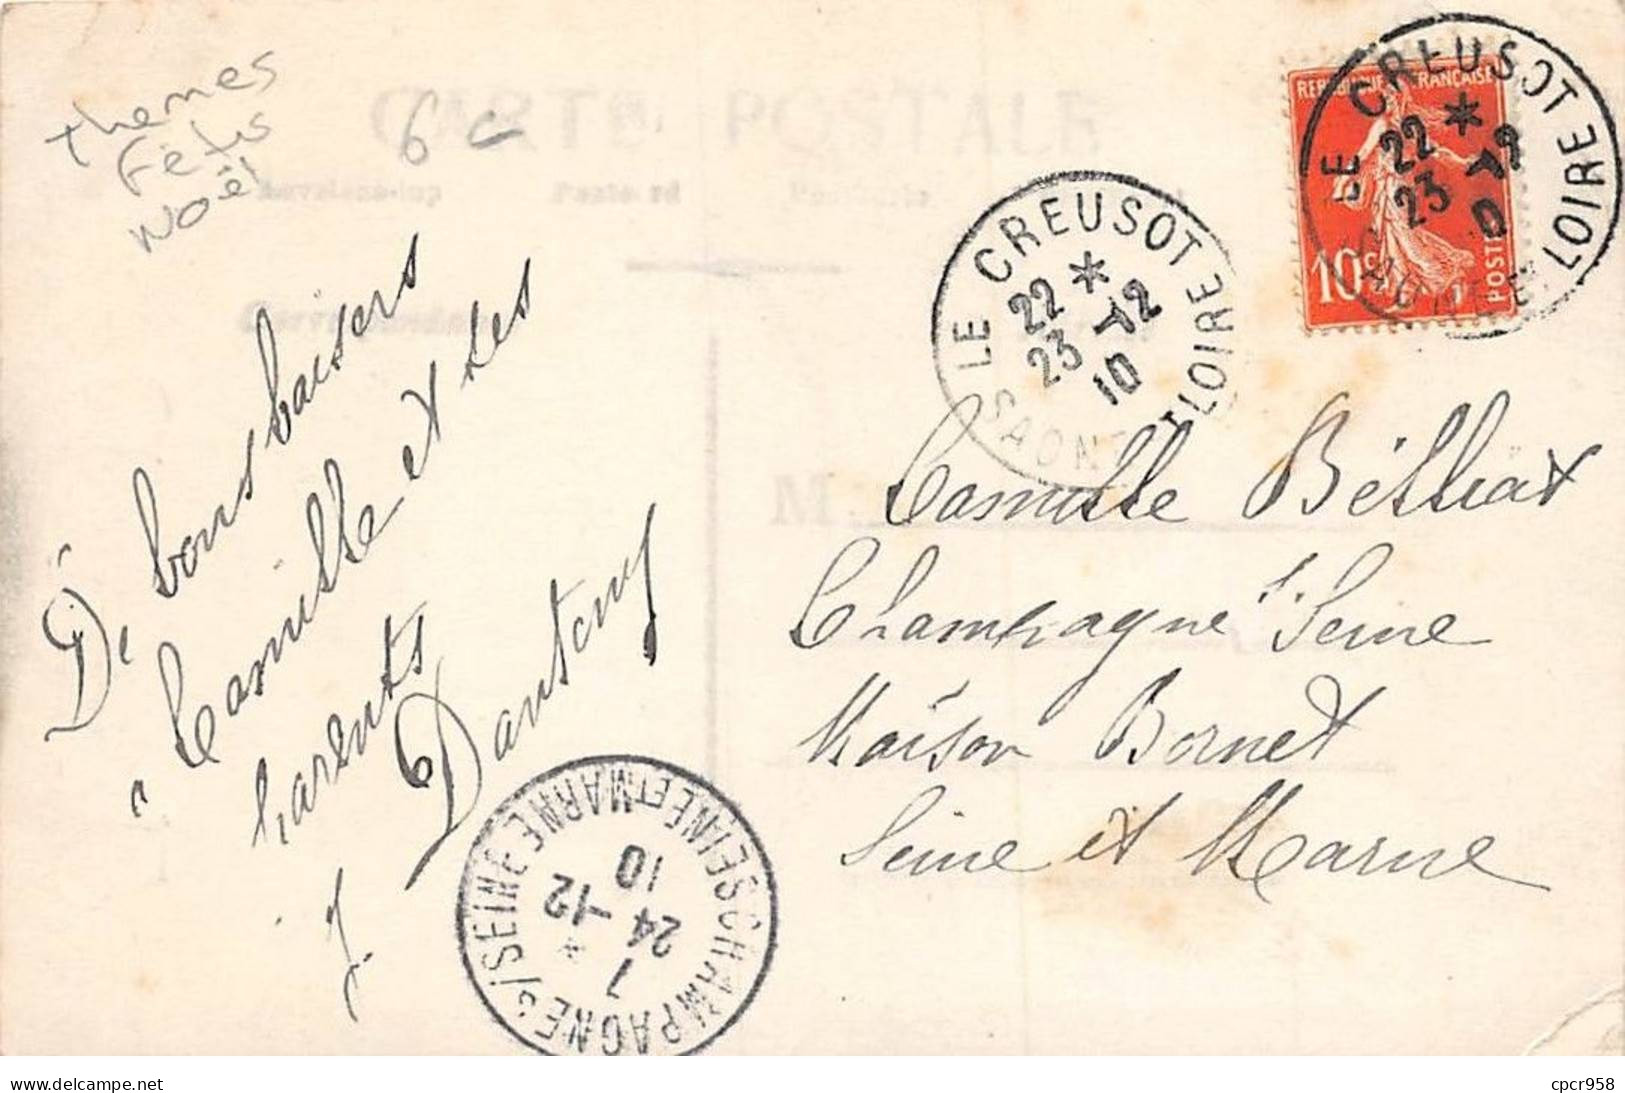 themes
Fêtes
Noël
6
CARTE POSTALE
Postcard
Correspondance
REPUBLIQUE FRANÇAISE
10c
POSTES
LE CREUSOT
22 *
23 -12
10
SAONE ET LOIRE
LE CREUSOT
22 *
23 -12
10
SAONE ET LOIRE
De bons baisers
à Camille et ses
parents
J. Dauteny
M
Camille Bélliat
Champagne s/ Seine
Maison Bornet
Seine et Marne
CHAMPAGNE S/ SEINE
7 *
24 -12
10
SEINE ET MARNE
www.delcampe.net
cpcr958